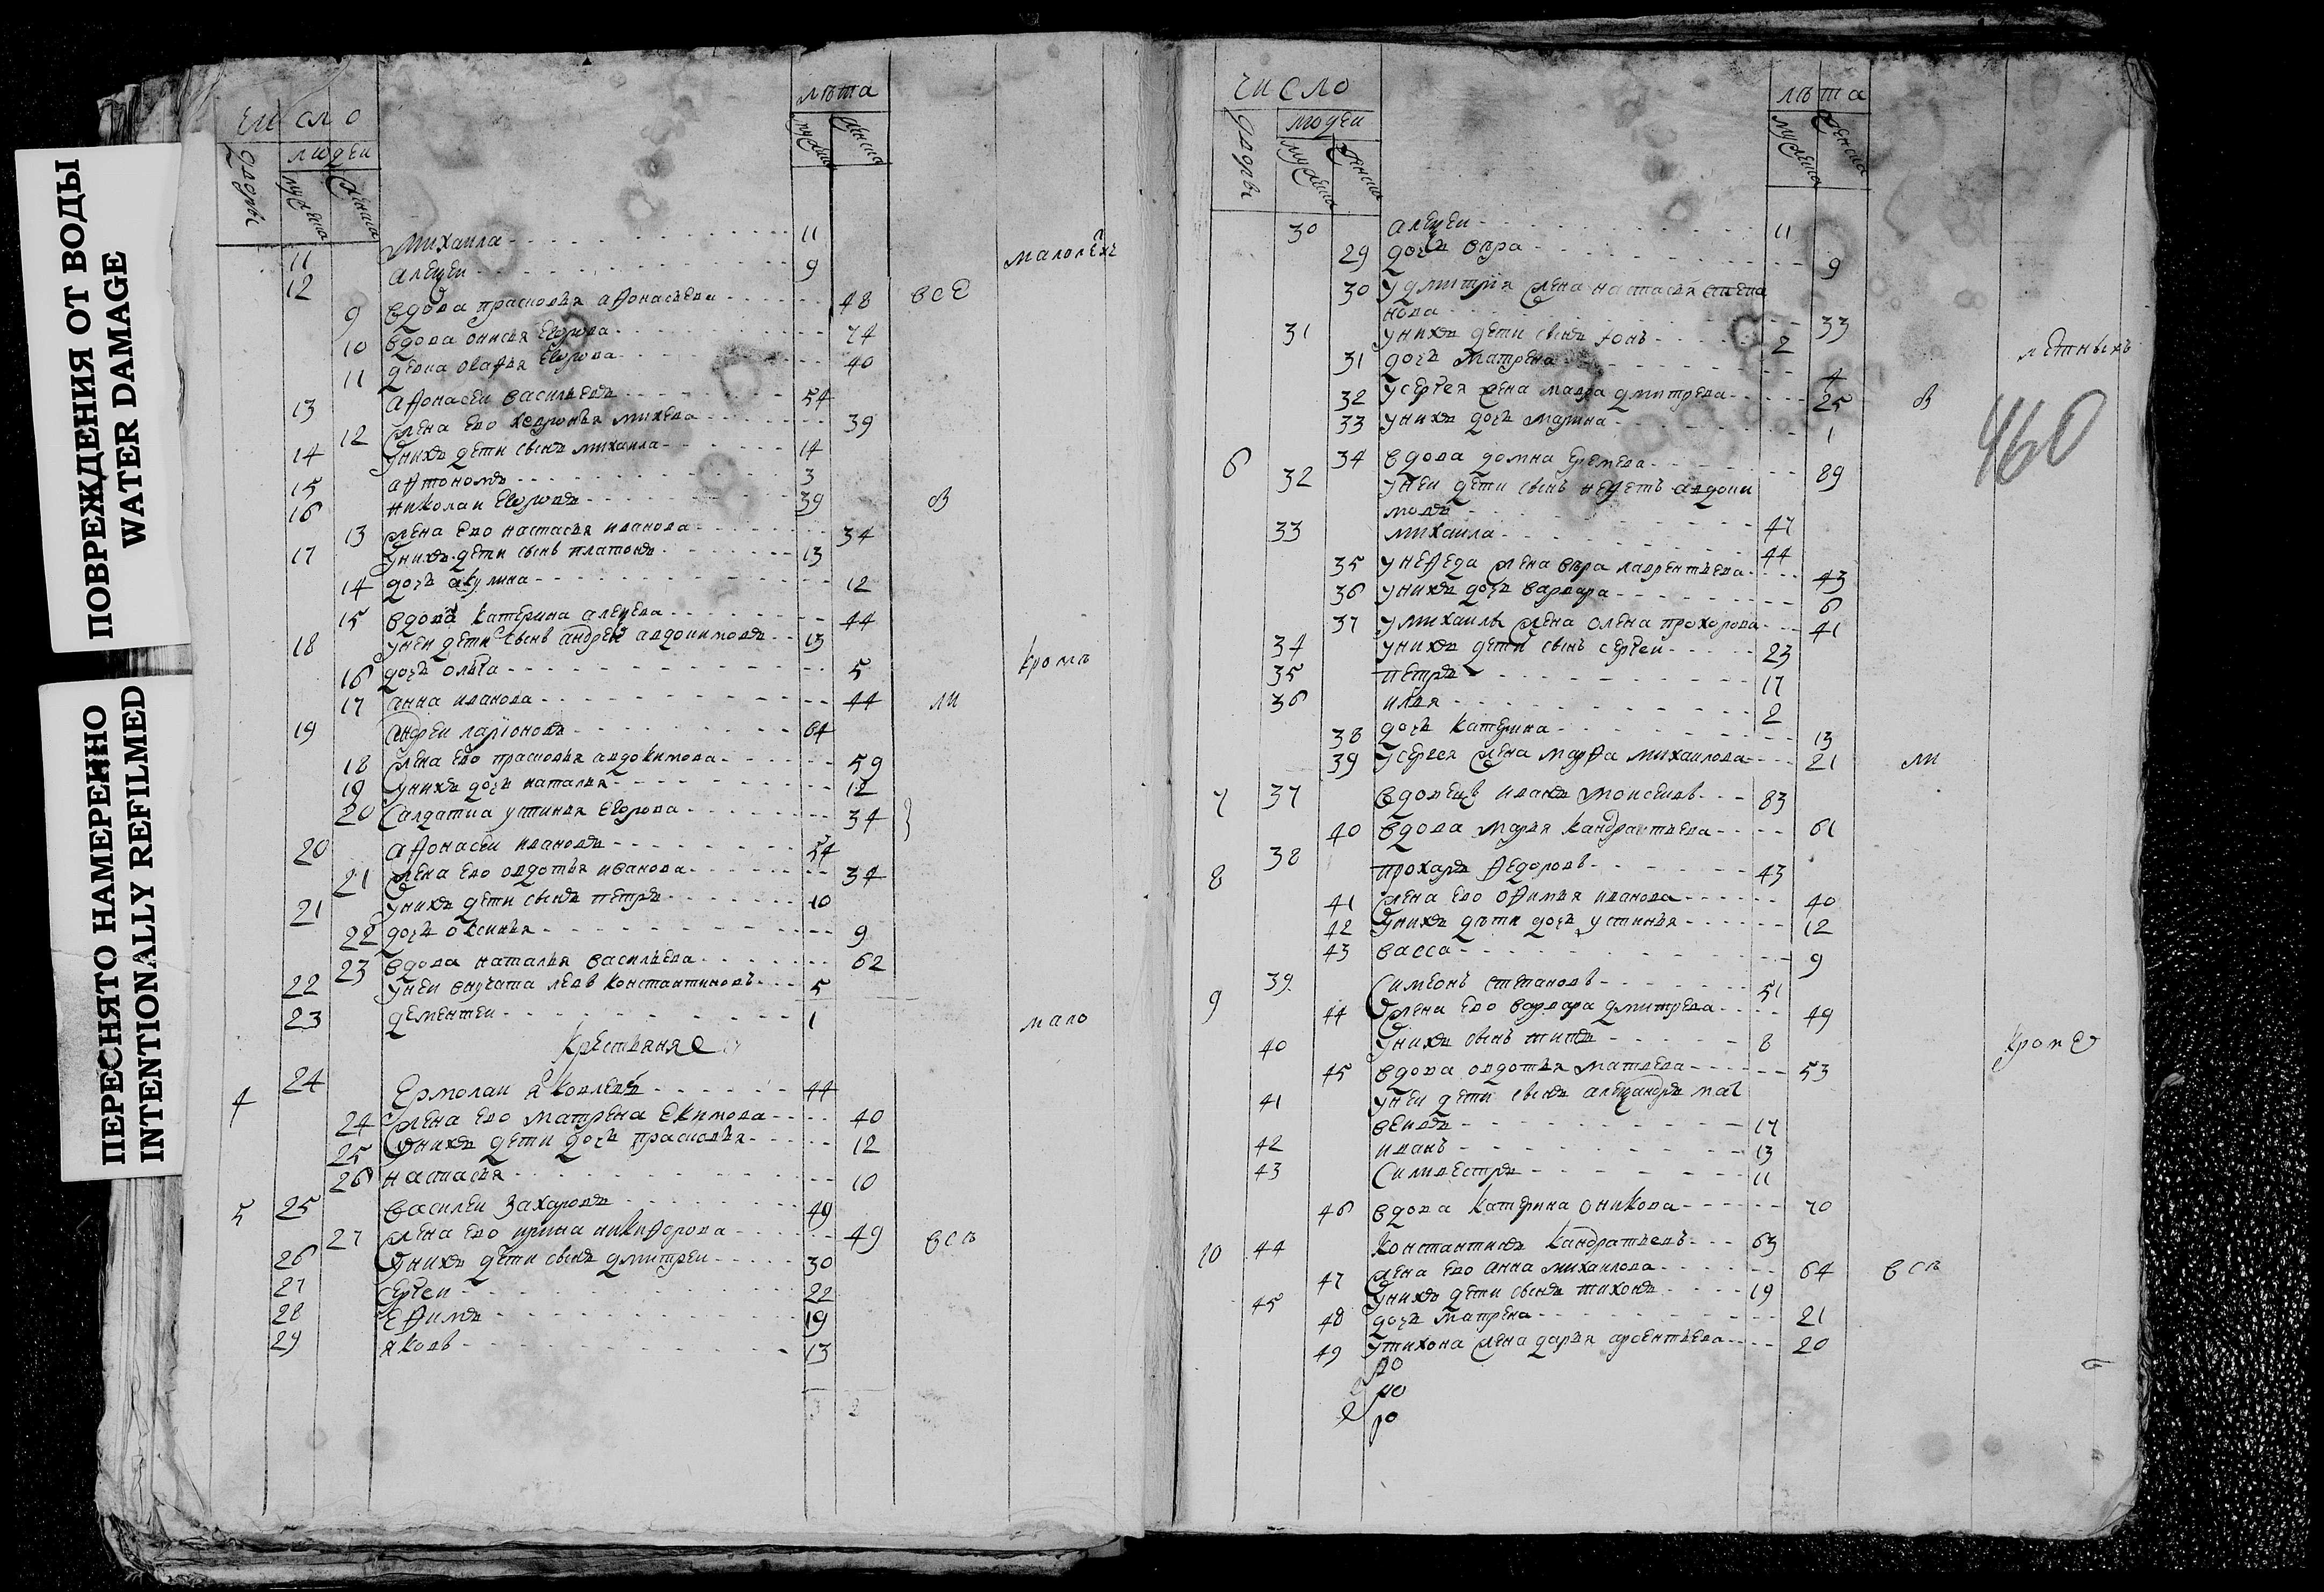 ПОВРЕЖДЕНИЯ ОТ ВОДЫ
WATER DAMAGE
ПЕРЕСНЯТО НАМЕРЕННО
INTENTIONALLY REFILMED
число
людеи
дворы
мужеска
женска
лѣта
мужеска
женска
11 Михаила 11
12 алеѯеи 9
малолѣт
9 вдова прасковья аѳонасьева 48 все
10 вдова онисья Егорова 74
11 девка Егорова 40
13 аѳонасеи васильевъ 54
12 жена ево михева 39
14 унихъ дети сынъ михаила 14
15 автономъ 3
16 николаи Егоровъ 39 в
13 жена ево настасья иванова 34
17 унихъ дети сынъ платонъ 13
14 дочь акулина 12
15 вдова катерина алеѯева 44
18 унеи дети сынъ андреи авдокимовъ 13
16 дочь олга 5
кромѣ
17 анна иванова 44 ли
19 андреи ларїоновъ 64
18 жена ево прасковья авдокимова 59
19 унихъ дочь наталья 12
20 салдатка устинья Егорова 34
20 аѳонасеи ивановъ 54
21 жена ево овдотья иванова 34
21 унихъ дети сынъ петръ 10
22 дочь оксинья 9
23 вдова наталья васильева 62
22 унеи внучата левъ константиновъ 5
23 дементеи 1
мало
крестьяня
4 24 Ермолаи яковлевъ 44
24 жена ево матрена Екимова 40
25 унихъ дети дочь прасковья 12
26 настасья 10
5 25 василеи захаровъ 49
27 жена ево ирина никиѳорова 49 всѣ
26 унихъ дети сынъ дмитреи 30
27 сергеи 22
28 еѳимъ 19
29 яковъ 13
число
людеи
дворы
мужеска
женска
лѣта
мужеска
женска
30 алеѯеи 11
29 дочь вѣра 9
30 у дмитрїя жена настасья степа
нова 33
31 унихъ дети сынъ 2
летныхъ
31 дочь матрена 4
32 усергея жена мавра дмитрева 25 в
33 унихъ дочь марина 1
460
6 34 вдова домна еремева 89
32 унеи дети сынъ неѳетъ авдоки
мовъ 47
33 михаила 44
35 унеѳеда жена вѣра лаврентьева 43
36 унихъ дочь варвара 6
37 умихаилы жена олена прохорова 41
34 унихъ дети сынъ сергеи 23
35 петръ 17
36 илья 2
38 дочь катерина 13
39 усергея жена марѳа михаилова 21 ли
7 37 вдовецъ иванъ моисеивъ 83
40 вдова марья кандратьева 61
8 38 прохаръ ѳедоровъ 43
41 жена ево оѳимья иванова 40
42 унихъ дѣти дочь устинья 12
43 васса 9
9 39 симеонъ степановъ 51
44 жена ево варвара дмитрева 49
40 унихъ сынъ титъ 8
кроме
45 вдова овдотья матвева 53
41 унеи дети сынъ алеѯандръ мат
веивъ 17
42 иванъ 13
43 силивестръ 11
46 вдова катерина оникова 70
10 44 константинъ кандратьевъ 63
47 жена ево анна михаилова 64 всѣ
45 унихъ дети сынъ тихонъ 19
48 дочь матрена 21
49 утихона жена дарья арсентьева 20